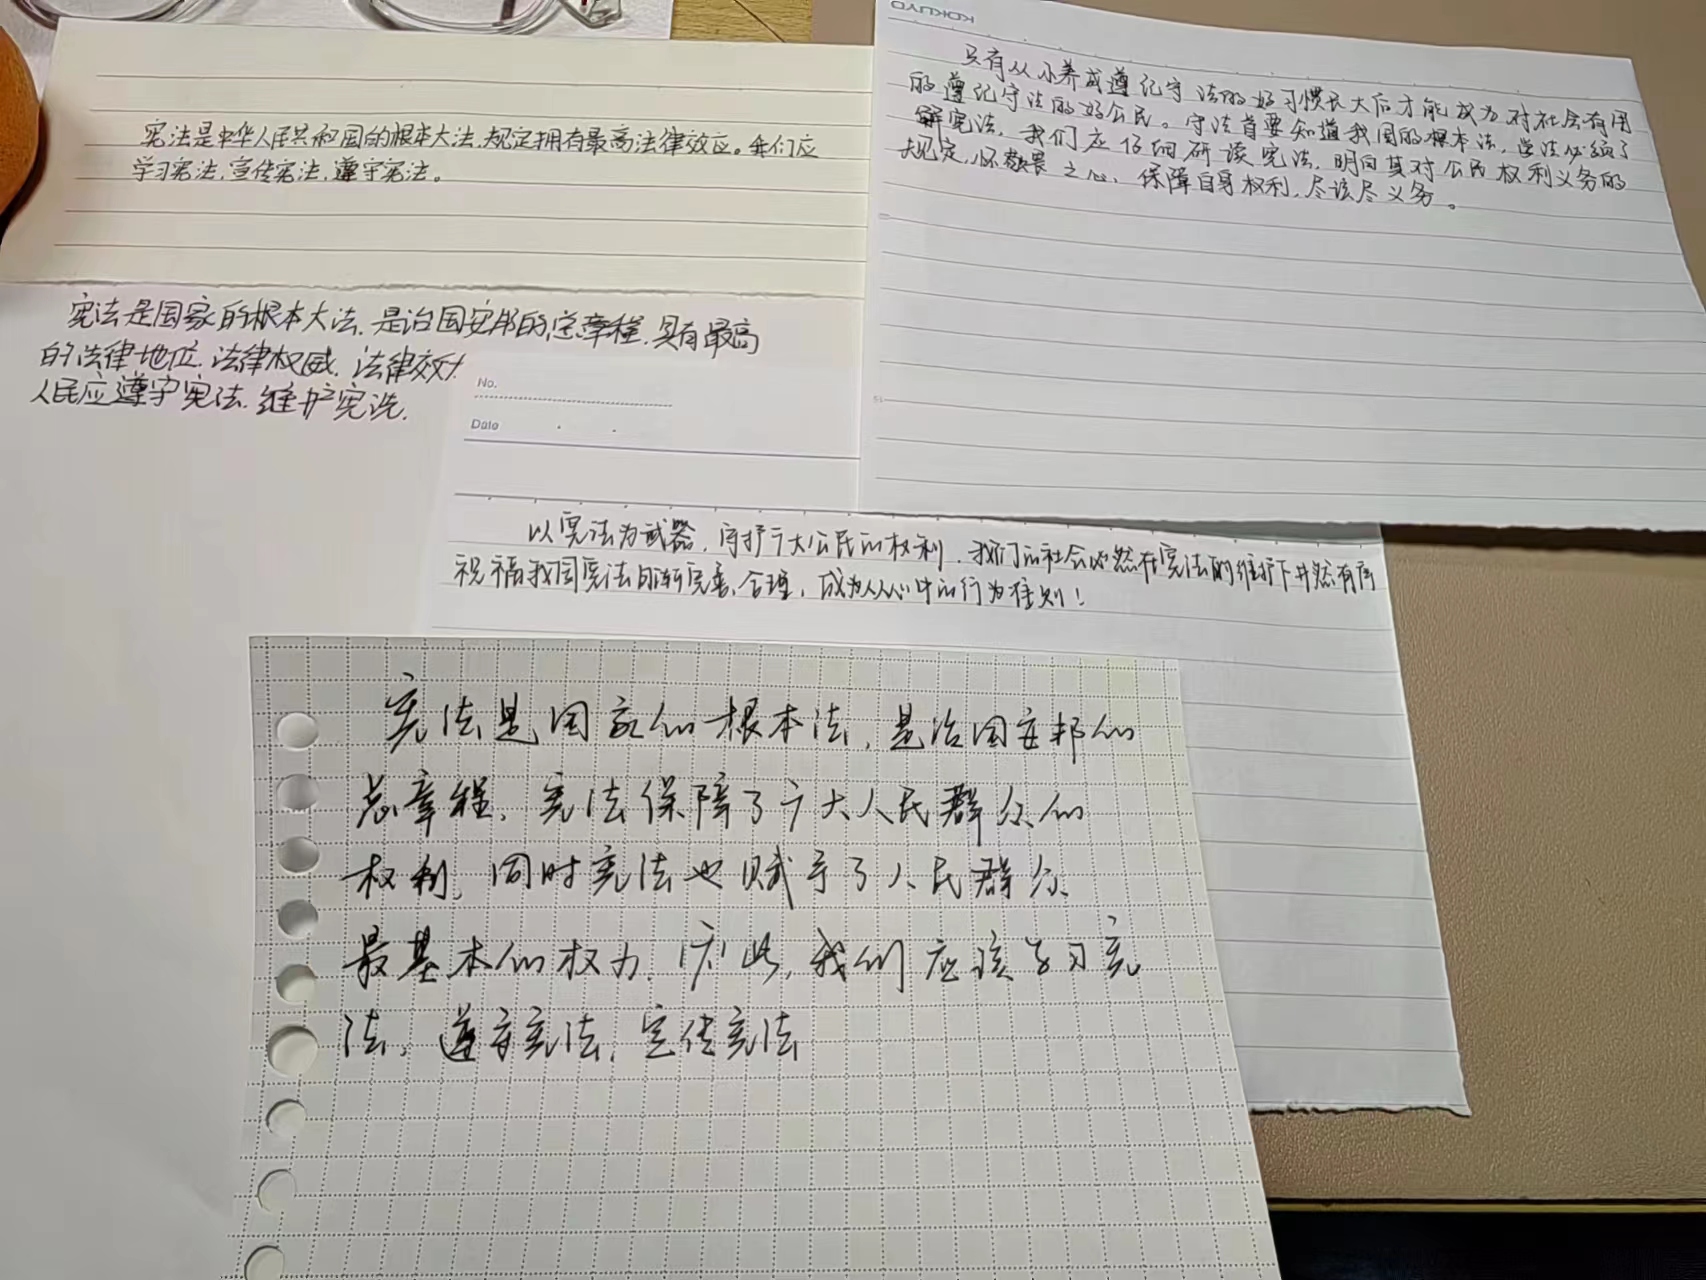 宪法是中华人民共和国的根本大法,规定拥有最高法律效应。我们应
学习宪法,宣传宪法,遵守宪法。
KOKUYO
只有从小养成遵记守法的好习惯长大后才能成为对社会有用
的遵记守法的好公民。守法首要知道我国的根本法,学法必须了
解宪法,我们应仔细研读宪法,明白其对公民权利义务的
规定,怀敬畏之心,保障自身权利,尽该尽义务。
宪法是国家的根本大法,是治国安邦的总章程,具有最高
的法律地位,法律权威,法律效
人民应遵守宪法,维护宪法.
No.
Date
以宪法为武器,守护广大公民的权利,我们的社会必然在宪法的维护下井然有序
祝福我国宪法日渐完善、合理,成为人人心中的行为准则!
宪法是国家的根本法,是治国安邦的
总章程,宪法保障了广大人民群众的
权利,同时宪法也赋予了人民群众
最基本的权力,因此,我们应该学习宪
法,遵守宪法,宣传宪法